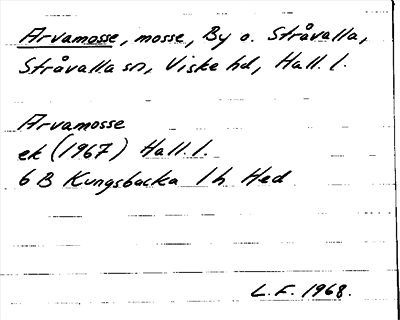 Arvamosse, mosse, By o. Stråvalla,
Stråvalla sn, Viske hd, Hall. l.
Arvamosse
ek (1967) Hall. l.
6 B Kungsbacka 1 h Hed
L. F. 1968.